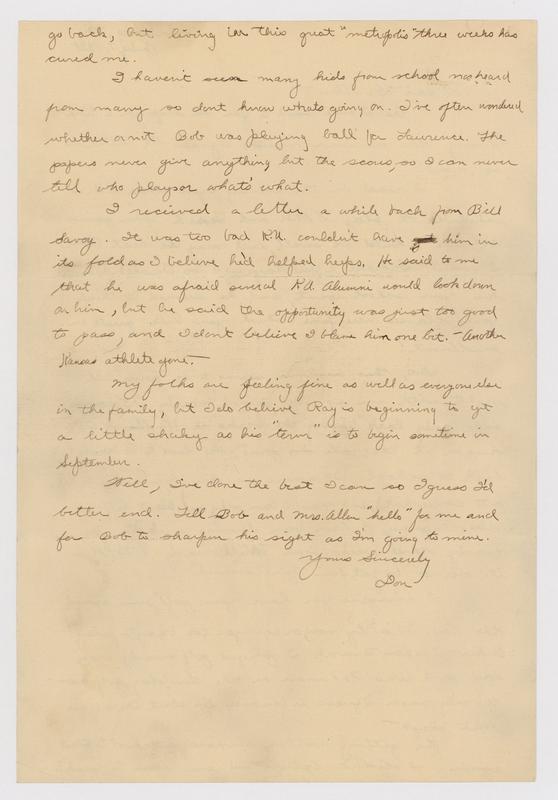 go back, but living in this great "metropolis" three weeks has
cured me.
I haven't seen many kids from school nor heard
from many so dont know whats going on. I've often wondered
whether or not Bob was playing ball for Lawrence. The
papers never give anything but the scores, so I can never
tell who plays or what's what.
I received a letter a while back from Bill
Savoy. It was too bad K.U. couldn't have him in
its fold as I believe he'd helped heaps. He said to me
that he was afraid several K.U. Alumni would look down
on him, but he said the opportunity was just too good
to pass, and I don't believe I blame him one bit. - Another
Kansas athlete gone. -
My folks are feeling fine as well as everyone else
in the family, but I do believe Ray is beginning to get
a little shaky as his "term" is to begin sometime in
September.
Well, I've done the best I can so I guess I'd
better end. Tell Bob and Mrs. Allen "hello" for me and
for Bob to sharpen his sight as I'm going to mine.
Yours Sincerely
Don